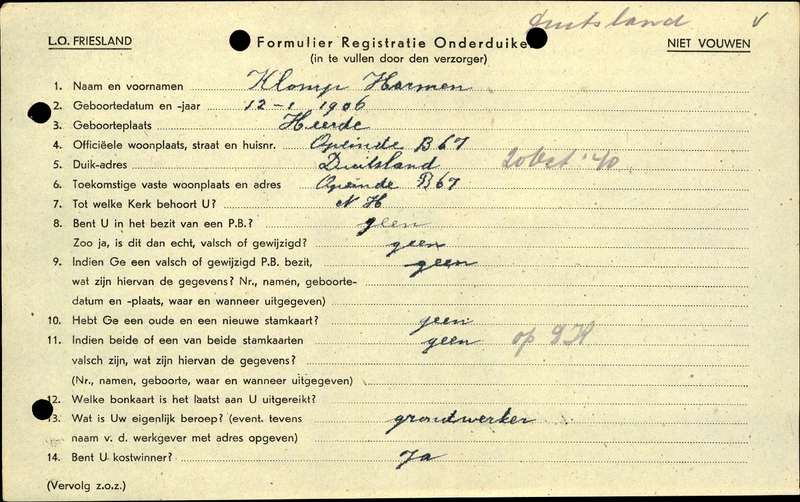 Duitsland V
L.O. FRIESLAND Formulier Registratie Onderduike NIET VOUWEN
(in te vullen door den verzorger)
1. Naam en voornamen Klomp Harmen
2. Geboortedatum en -jaar 12-1 1906
3. Geboorteplaats Heerde
4. Officiëele woonplaats, straat en huisnr. Opeinde B 67
5. Duik-adres Duitsland 20 Oct '40
6. Toekomstige vaste woonplaats en adres Opeinde B 67
7. Tot welke Kerk behoort U? N H
8. Bent U in het bezit van een P.B.? geen
Zoo ja, is dit dan echt, valsch of gewijzigd? geen
9. Indien Ge een valsch of gewijzigd P.B. bezit, geen
wat zijn hiervan de gegevens? Nr., namen, geboorte-
datum en -plaats, waar en wanneer uitgegeven)
10. Hebt Ge een oude en een nieuwe stamkaart? geen
11. Indien beide of een van beide stamkaarten geen op
valsch zijn, wat zijn hiervan de gegevens?
(Nr., namen, geboorte, waar en wanneer uitgegeven)
12. Welke bonkaart is het laatst aan U uitgereikt?
13. Wat is Uw eigenlijk beroep? (event. tevens grondwerker
naam v. d. werkgever met adres opgeven)
14. Bent U kostwinner? Ja
(Vervolg z.o.z.)